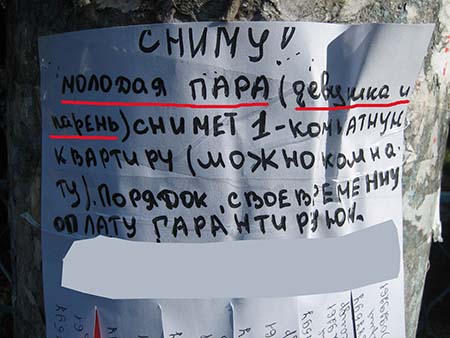 СНИМУ!
МОЛОДАЯ ПАРА (девушка и
парень) СНИМЕТ 1-КОМНАТНУЮ
КВАРТИРУ (МОЖНО КОМНА-
ТУ). ПОРЯДОК, СВОЕВРЕМЕННУЮ
ОПЛАТУ ГАРАНТИРУЮ.